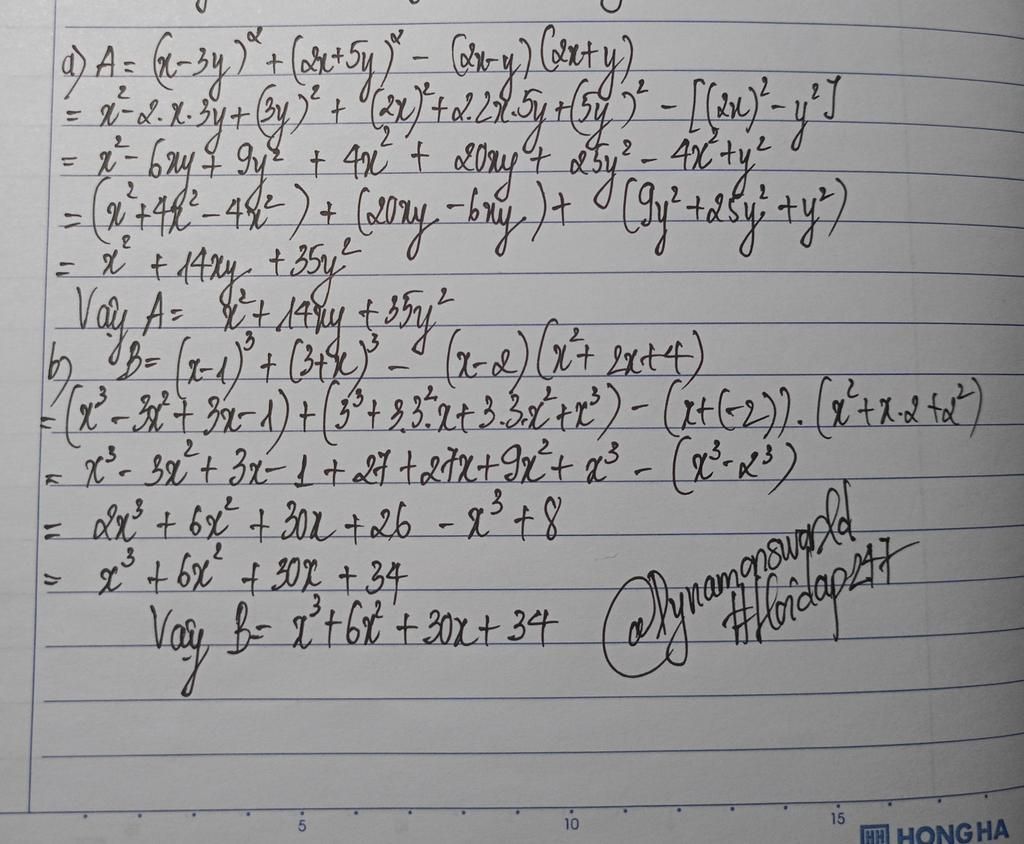 a) A = (x-3y)² + (2x+5y)² - (2x-y)(2x+y)
= x² - 2.x.3y + (3y)² + (2x)² + 2.2x.5y + (5y)² - [(2x)² - y²]
= x² - 6xy + 9y² + 4x² + 20xy + 25y² - 4x² + y²
= (x² + 4x² - 4x²) + (20xy - 6xy) + (9y² + 25y² + y²)
= x² + 14xy + 35y²
Vậy A = x² + 14xy + 35y²
b) B = (x-1)³ + (3+x)³ - (x-2)(x² + 2x + 4)
= (x³ - 3x² + 3x - 1) + (3³ + 3.3².x + 3.3.x² + x³) - (x+(-2)).(x² + x.2 + 2²)
= x³ - 3x² + 3x - 1 + 27 + 27x + 9x² + x³ - (x³ - 2³)
= 2x³ + 6x² + 30x + 26 - x³ + 8
= x³ + 6x² + 30x + 34
Vậy B = x³ + 6x² + 30x + 34
#Hoidap247
5 10 15
HH HONG HA